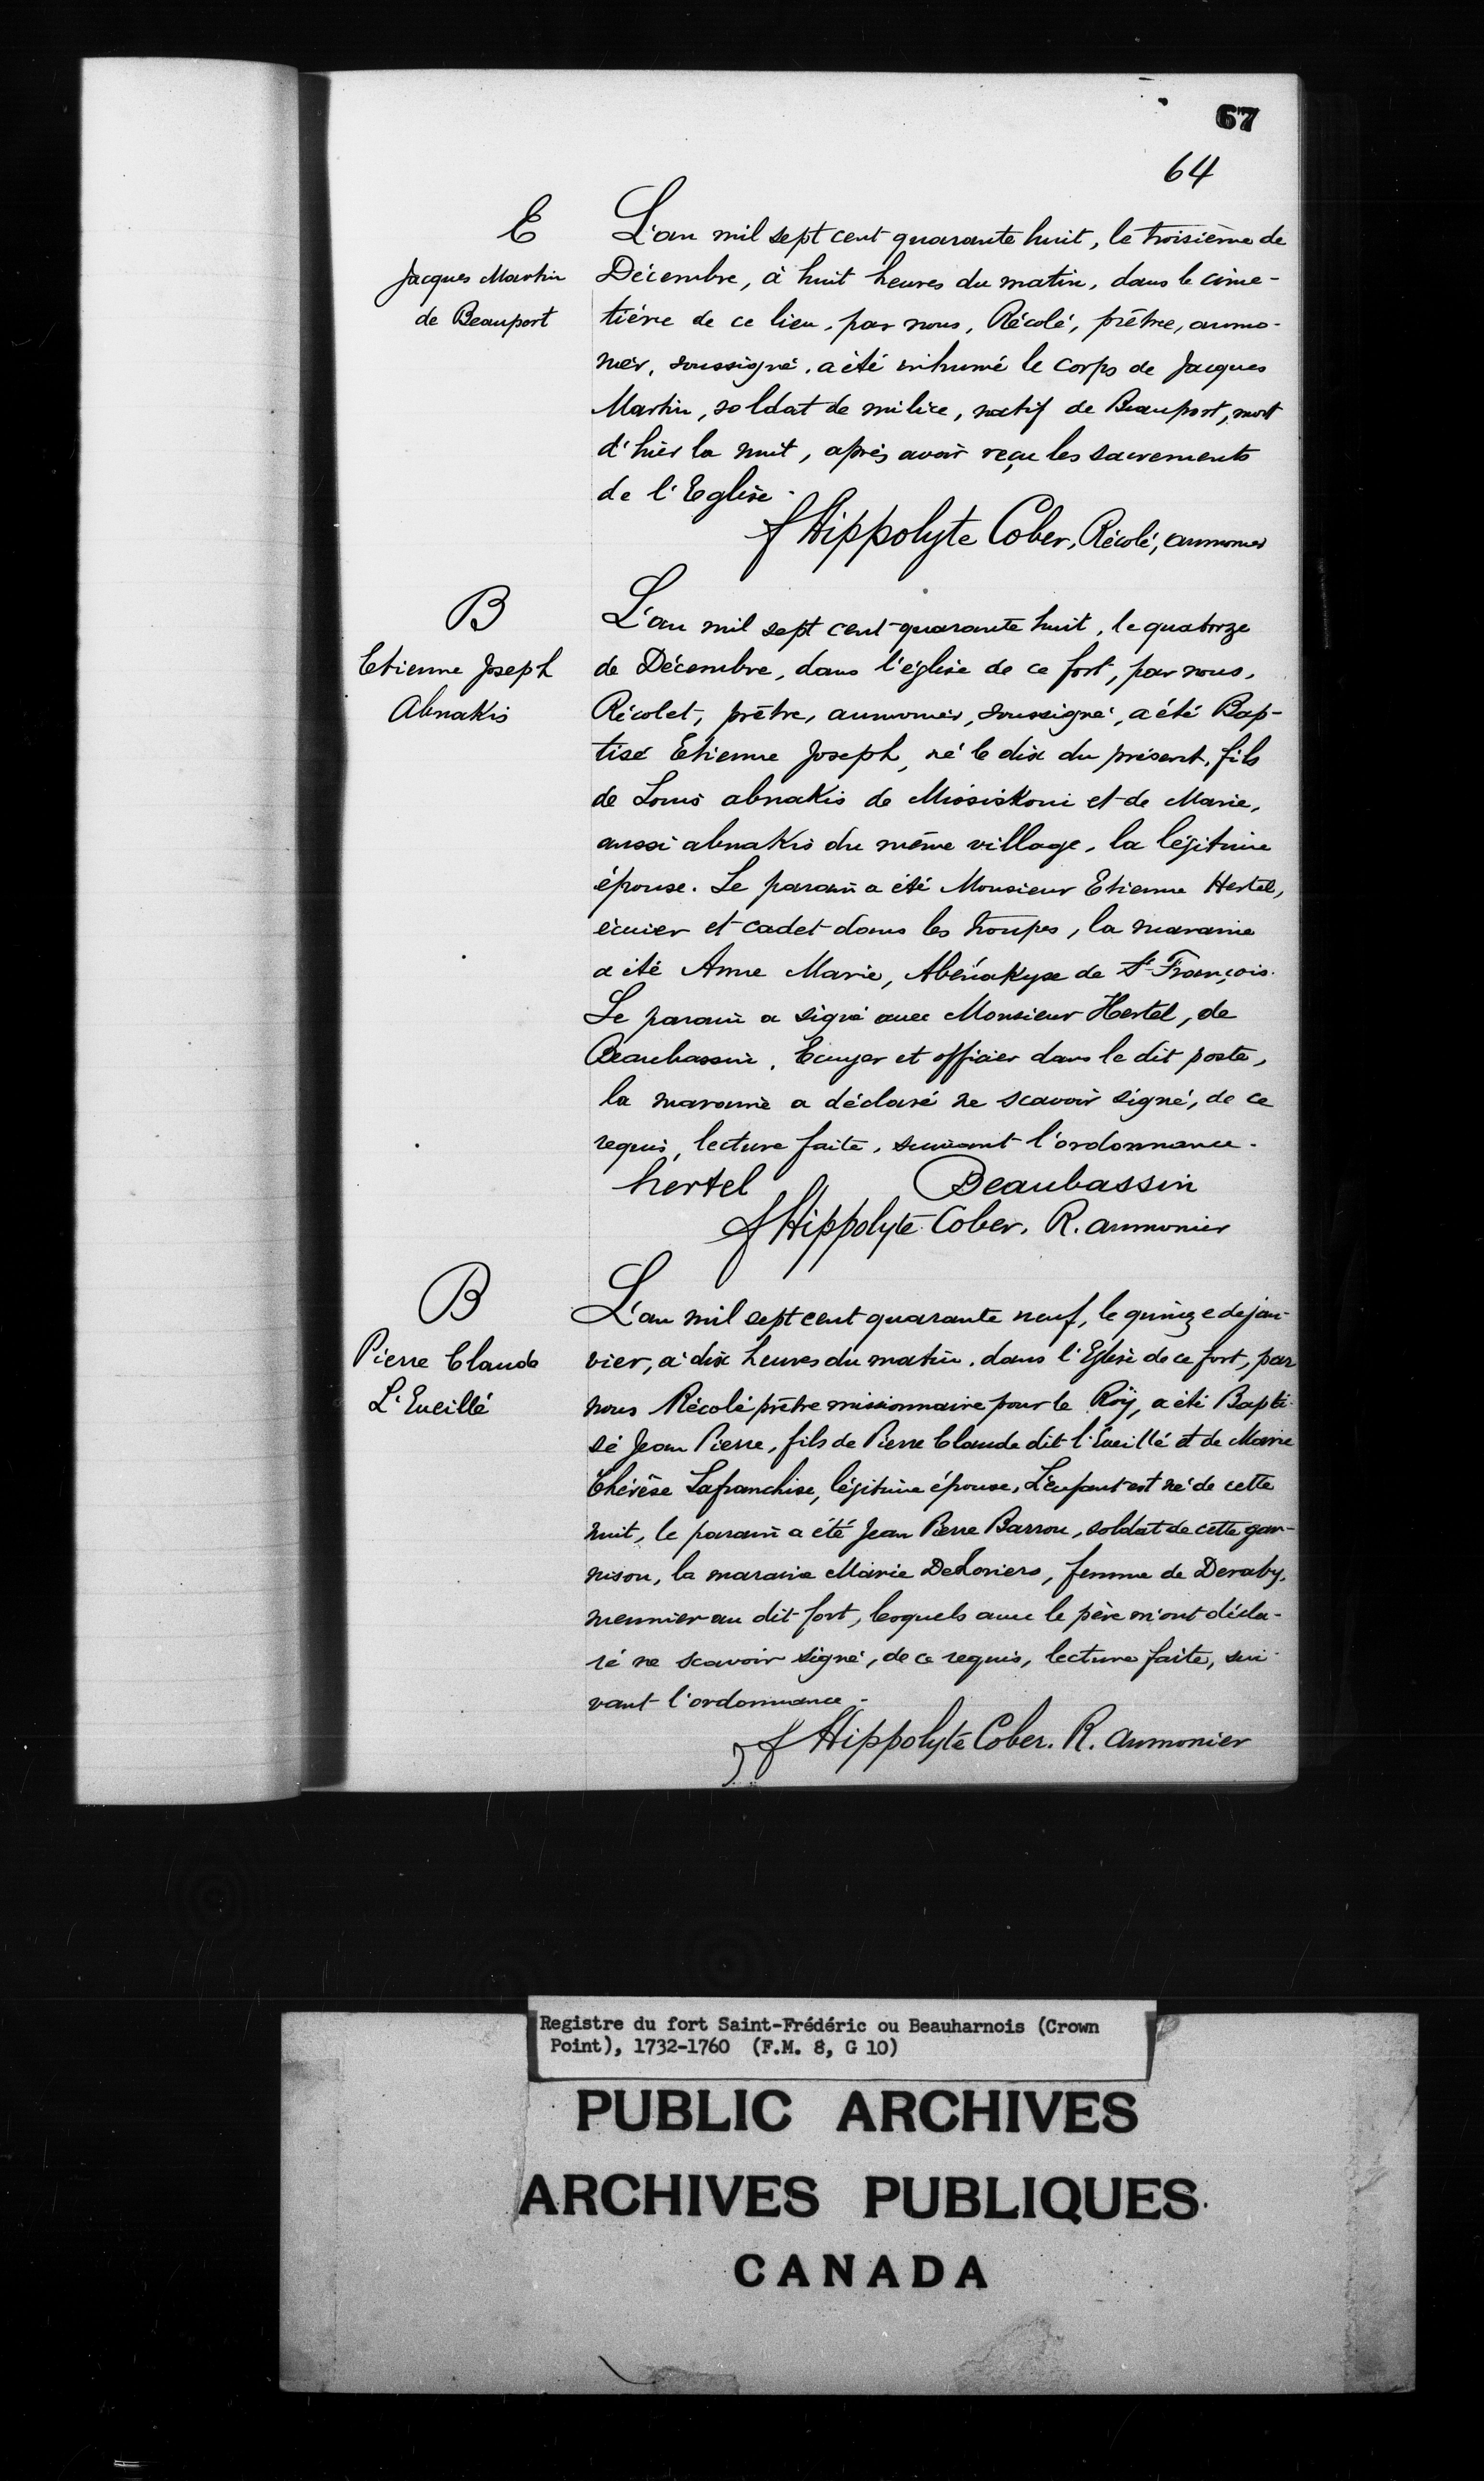 67
64
E
Jacques Martin
de Beauport
L'an mil sept cent quarante huit, le troisième de
Décembre, à huit heures du matin, dans le cime-
tière de ce lieu, par nous, Récolé, prêtre, aumo-
nier, soussigné, a été inhumé le corps de Jacques
Martin, soldat de milice, natif de Beauport, mort
d'hier la nuit, après avoir reçu les sacrements
de l'Eglise.
f Hippolyte Cober, Récolé, aumonier
B
Etienne Joseph
Abnakis
L'an mil sept cent quarante huit, le quatorze
de Décembre, dans l'église de ce fort, par nous,
Récolet, prêtre, aumonier, soussigné, a été Bap-
tisé Etienne Joseph, né le dix du présent, fils
de Louis abnakis de Missiskoui et de Marie,
aussi abnakis du même village, la légitime
épouse. Le parain a été Monsieur Etienne Hertel,
écuier et cadet dans les troupes, la maraine
a été Anne Marie, Abénakyse de St François.
Le parain a signé avec Monsieur Hertel, de
Beaubassin, Ecuyer et officier dans le dit poste,
la maraine a déclaré ne scavoir signé, de ce
requis, lecture faite, suivant l'ordonnance.
hertel Beaubassin
f Hippolyte Cober, R. aumonier
B
Pierre Claude
L'Eueillé
L'an mil sept cent quarante neuf, le quinze de jan-
vier, à dix heures du matin, dans l'Eglise de ce fort, par
nous Récolé prêtre missionnaire pour le Roÿ, a été Bapti-
sé Jean Pierre, fils de Pierre Claude dit l'Eueillé et de Marie
Thérèse Lafranchise, légitime épouse, L'enfant est né de cette
nuit, le parain a été Jean Pierre Barrou, soldat de cette gar-
nison, la maraine Marie DeLoriers, femme de Deraby,
meunier au dit fort, lesquels avec le père m'ont décla-
ré ne scavoir signé, de ce requis, lecture faite, sui-
vant l'ordonnance.
f Hippolyte Cober. R. aumonier
Registre du fort Saint-Frédéric ou Beauharnois (Crown
Point), 1732-1760 (F.M. 8, G 10)
PUBLIC ARCHIVES
ARCHIVES PUBLIQUES
CANADA